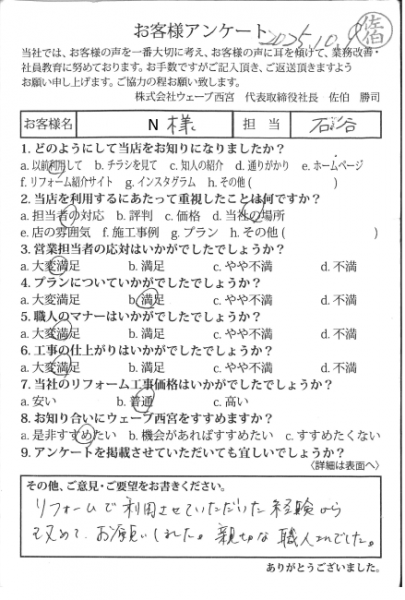 お客様アンケート 2025.10.9 佐伯
当社では、お客様の声を一番大切に考え、お客様の声に耳を傾けて、業務改善・
社員教育に努めております。お手数ですがご記入頂き、ご返送頂きますよう
お願い申し上げます。ご協力の程お願い致します。
株式会社ウェーブ西宮 代表取締役社長 佐伯 勝司
お客様名 N 様 担当 石谷
1. どのようにして当店をお知りになりましたか?
a. 以前利用して b. チラシを見て c. 知人の紹介 d. 通りがかり e. ホームページ
f. リフォーム紹介サイト g. インスタグラム h. その他( )
2. 当店を利用するにあたって重視したことは何ですか?
a. 担当者の対応 b. 評判 c. 価格 d. 当社の場所
e. 店の雰囲気 f. 施工事例 g. プラン h. その他( )
3. 営業担当者の応対はいかがでしたでしょうか?
a. 大変満足 b. 満足 c. やや不満 d. 不満
4. プランについていかがでしたでしょうか?
a. 大変満足 b. 満足 c. やや不満 d. 不満
5. 職人のマナーはいかがでしたでしょうか?
a. 大変満足 b. 満足 c. やや不満 d. 不満
6. 工事の仕上がりはいかがでしたでしょうか?
a. 大変満足 b. 満足 c. やや不満 d. 不満
7. 当社のリフォーム工事価格はいかがでしたでしょうか?
a. 安い b. 普通 c. 高い
8. お知り合いにウェーブ西宮をすすめますか?
a. 是非すすめたい b. 機会があればすすめたい c. すすめたくない
9. アンケートを掲載させていただいても宜しいでしょうか?
〈詳細は表面へ〉
その他、ご意見・ご要望をお書きください。
リフォームで利用させていただいた経験から
改めて、お願いしました。親切な職人さんでした。
ありがとうございました。